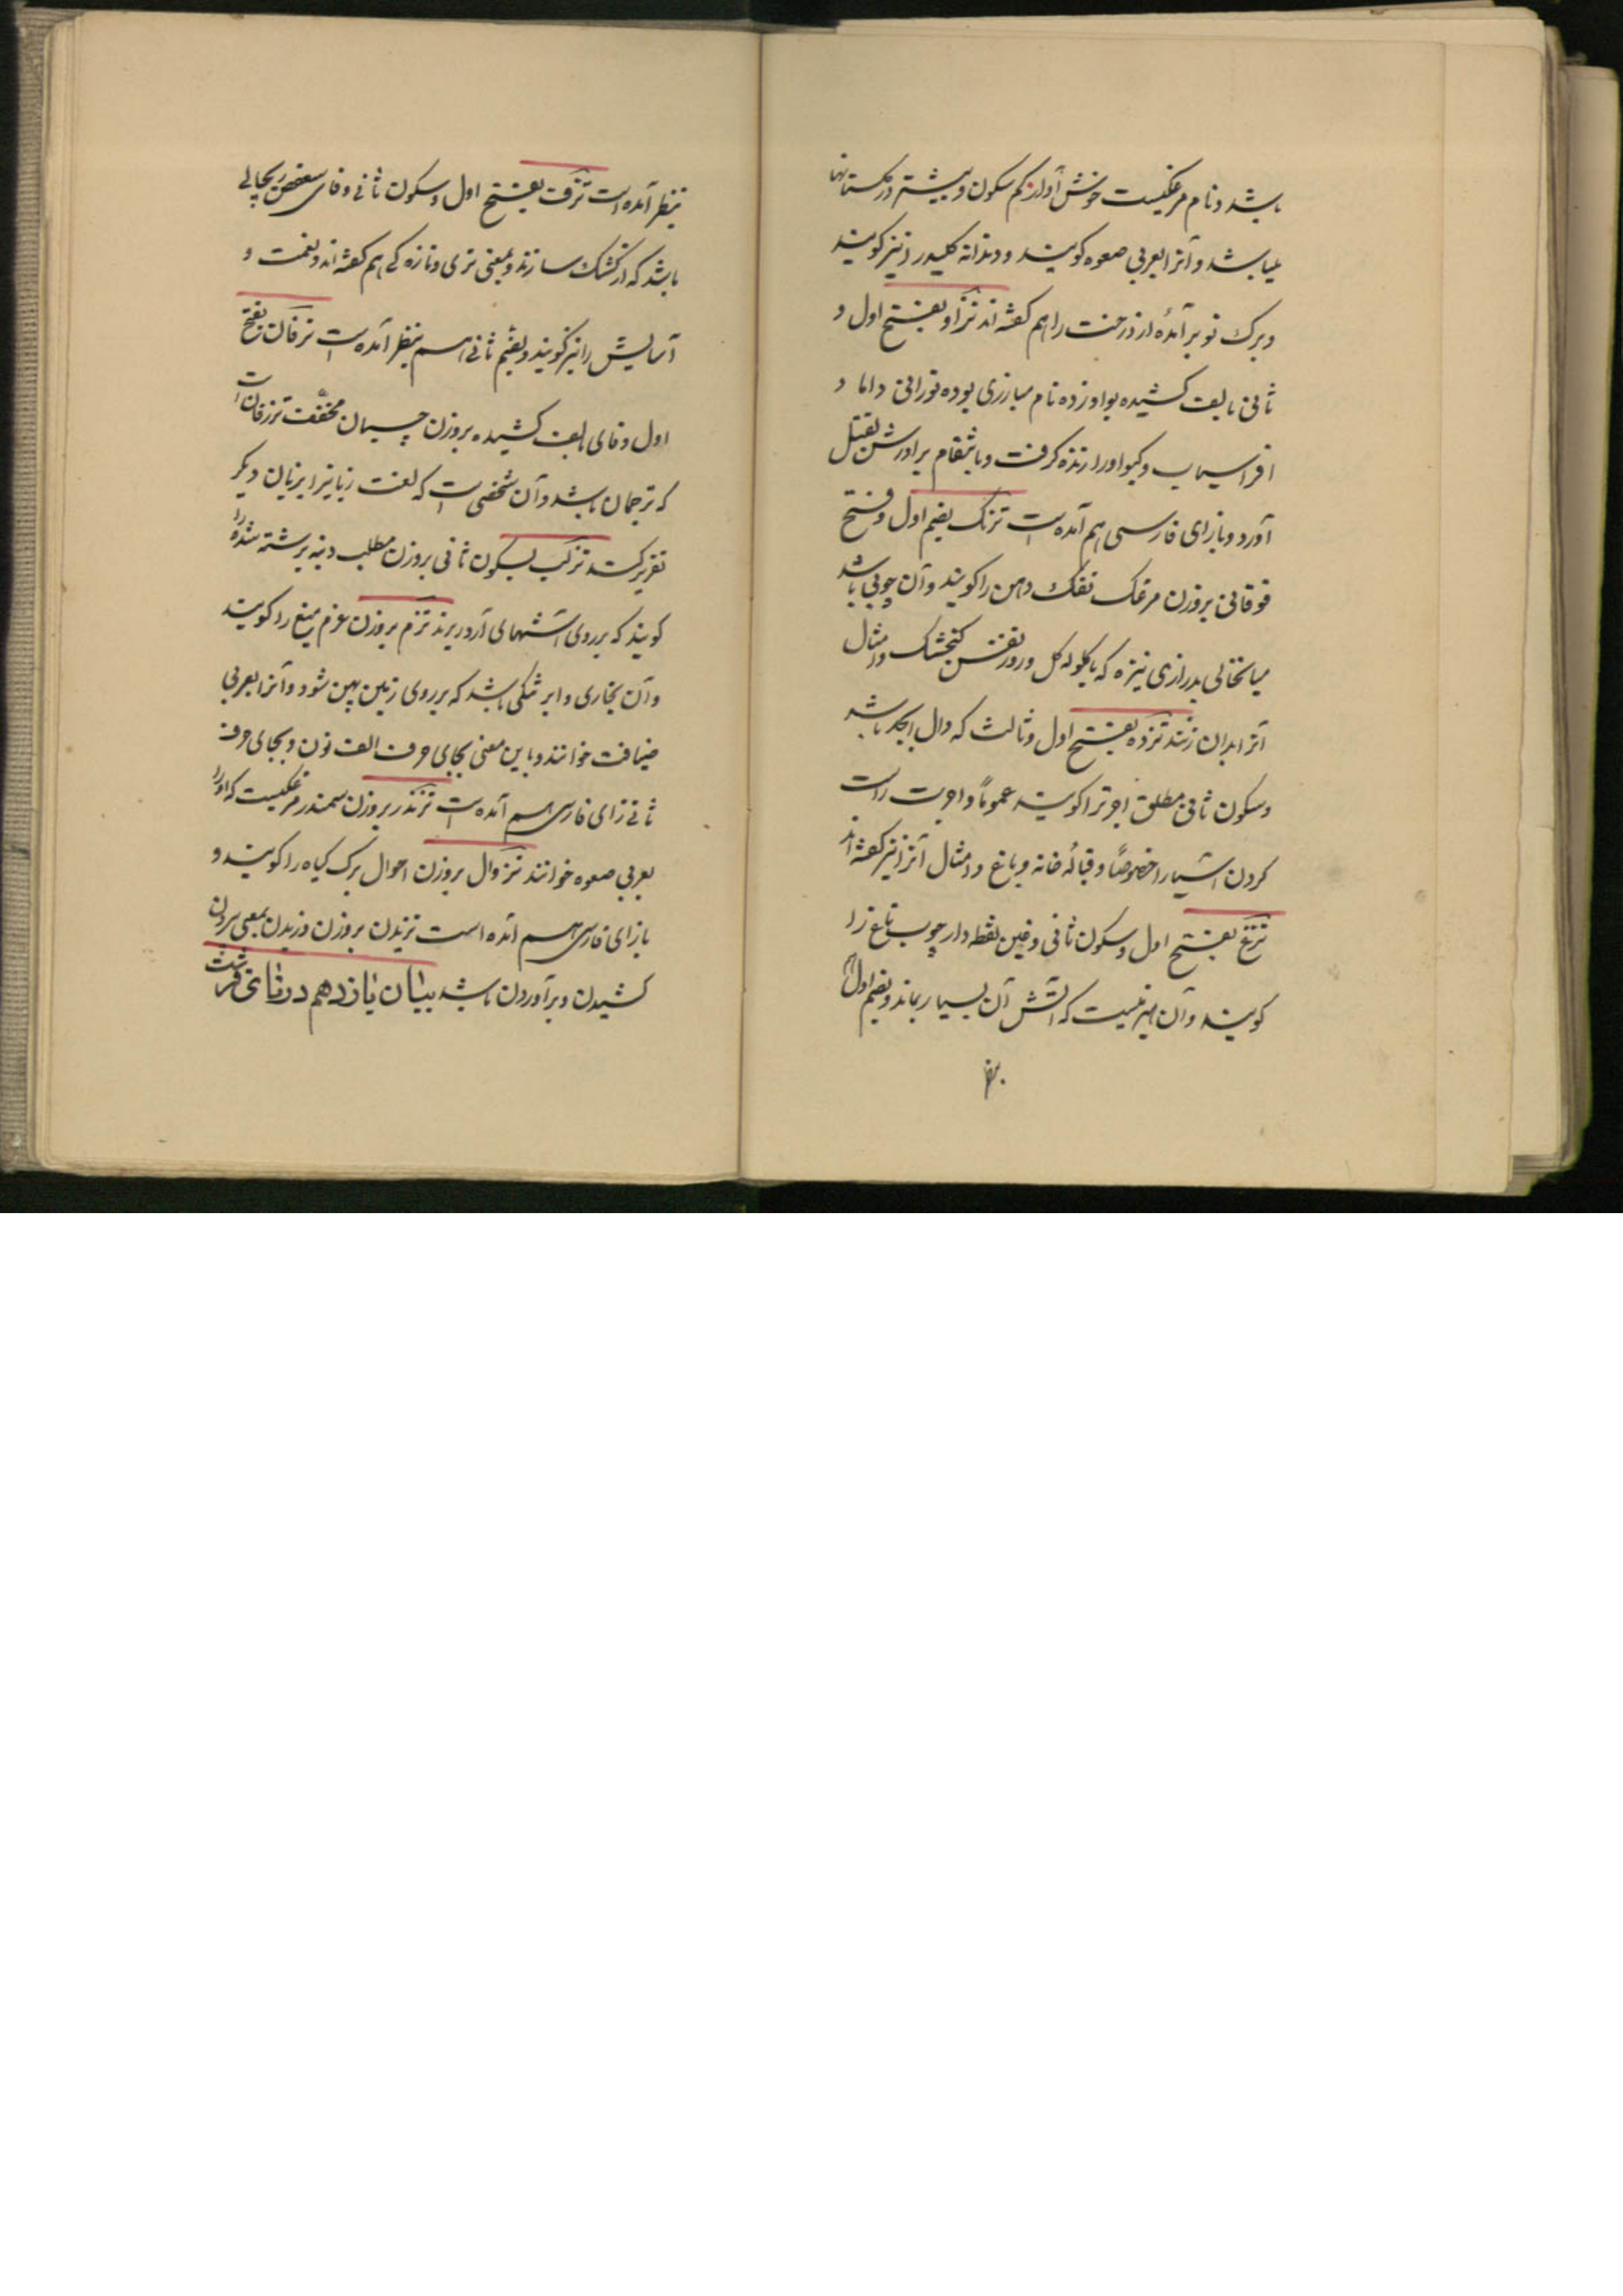 باشد و نام مرغکیست خوش آواز کم سکون و بیشتر در گلستانها
میباشد و آنرا بعربی صعوه گویند و دندانه کلید را نیز گویند
و برک نو برآمدهٔ از درخت را هم گفته اند تزاو بفتح اول و
ثانی بالف کشیده بواو زده نام مبارزی بوده تورانی داماد
افراسیاب و گیو او را زنده گرفت و بانتقام برادرش بقتل
آورد و بازای فارسی هم آمده است تزتک بضم اول و فتح
فوقانی بروزن مرغک تفک دهن را گویند و آن چوبی باشد
میانخالی بدرازی نیزه که با گلوله گل و زور نفس گنجشک و امثال
آنرا بدان زنند تزده بفتح اول و ثالث که دال ابجد باشد
و سکون ثانی مطلق اجرت را گویند عموماً و اجرت راست
کردن آسیا را خصوصاً و قبالهٔ خانه و باغ و امثال آنرا نیز گفته اند
تزغ بفتح اول و سکون ثانی و غین نقطه دار چوب تاغ را
گویند و آن هیزمیست که آتش آن بسیار بماند و بضم اول هم
بنظر
بنظر آمده است تزف بفتح اول و سکون ثانی و فای سعفص ریچالی
باشد که از کشک سازند و بمعنی تری و تازه کی هم گفته اند و نعمت و
آسایش را نیز گویند و بضم ثانی هم بنظر آمده است تزفان بفتح
اول و فای بالف کشیده بروزن چسپان مخفف تززفان است
که ترجمان باشد و آن شخصی است که لغت زبانیرا بزبان دیگر
تقریر کند تزکب بسکون ثانی بروزن مطلب دنبه برشته شده را
گویند که بر روی آشهای آرد ریزند تزم بروزن عزم میغ را گویند
و آن بخاری و ابر تنکی باشد که بر روی زمین پهن شود و آنرا بعربی
ضبافت خوانند و باین معنی بجای حرف الف نون و بجای حرف
ثانی زای فارسی هم آمده است تزندر بروزن سمندر مرغکیست که او را
بعربی صعوه خوانند تزوال بروزن احوال برک گیاه را گویند و
بازای فارسی هم آمده است تزیدن بروزن وزیدن بمعنی بیرون
کشیدن و برآوردن باشد بیان یازدهم در تای قرشت